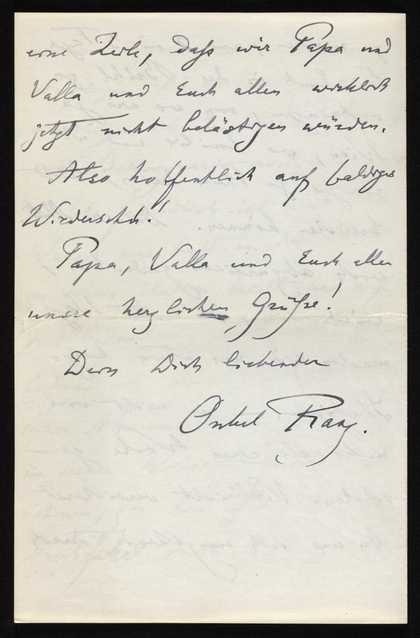 eine Zeile, daß wir Papa und
Valla und Euch allen wirklich
jetzt nicht belästigen würden.
Also hoffentlich auf baldiges
Wiedersehn!
Papa, Valla und Euch allen
unsere herzlichen Grüße!
Dein Dich liebender
Onkel